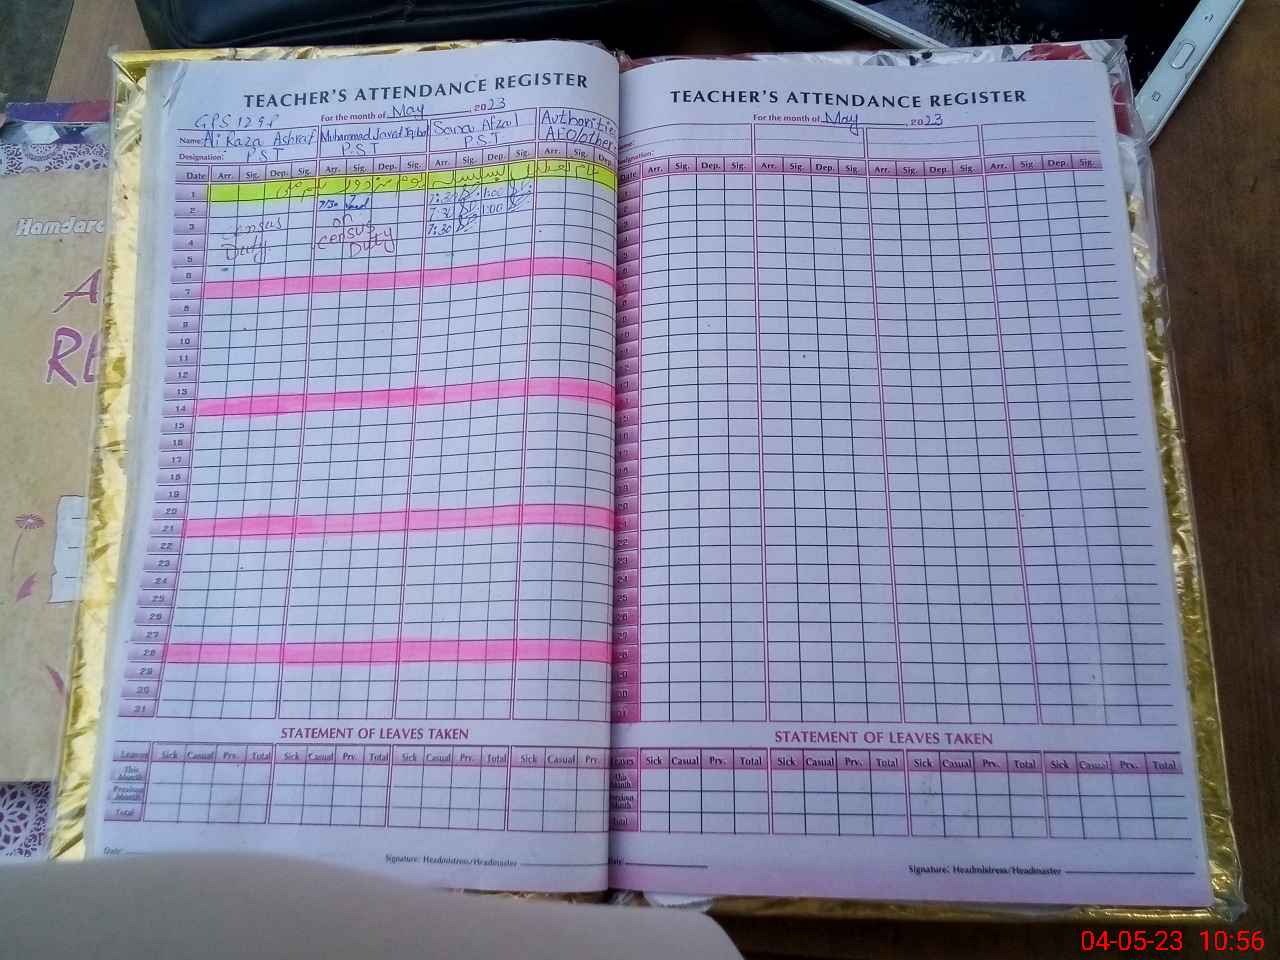 Hamdard
TEACHER'S ATTENDANCE REGISTER
GPS 129P For the month of May, 2023
Name: Ali Raza Ashraf Muhammad Javed Iqbal Sana Afzal Authorities
Designation: P.S.T P.S.T P.S.T AEO/other
Date Arr. Sig. Dep. Sig. Arr. Sig. Dep. Sig. Arr. Sig. Dep. Sig. Arr. Sig. Dep.
1
2 7/30 7:30 1:00
3 Census on 7:30 1:00
4 Duty Census Duty 7:30
5
6
7
8
9
10
11
12
13
14
15
16
17
18
19
20
21
22
23
24
25
26
27
28
29
30
31
STATEMENT OF LEAVES TAKEN
Leaves Sick Casual Prv. Total Sick Casual Prv. Total Sick Casual Prv. Total Sick Casual Prv.
This Month
Previous Month
Total
Date:
Signature: Headmistress/Headmaster
TEACHER'S ATTENDANCE REGISTER
For the month of May, 2023
Designation:
Date Arr. Sig. Dep. Sig. Arr. Sig. Dep. Sig. Arr. Sig. Dep. Sig. Arr. Sig. Dep. Sig.
STATEMENT OF LEAVES TAKEN
Leaves Sick Casual Prv. Total Sick Casual Prv. Total Sick Casual Prv. Total Sick Casual Prv. Total
This Month
Previous Month
Total
Date
Signature: Headmistress/Headmaster
04-05-23 10:56